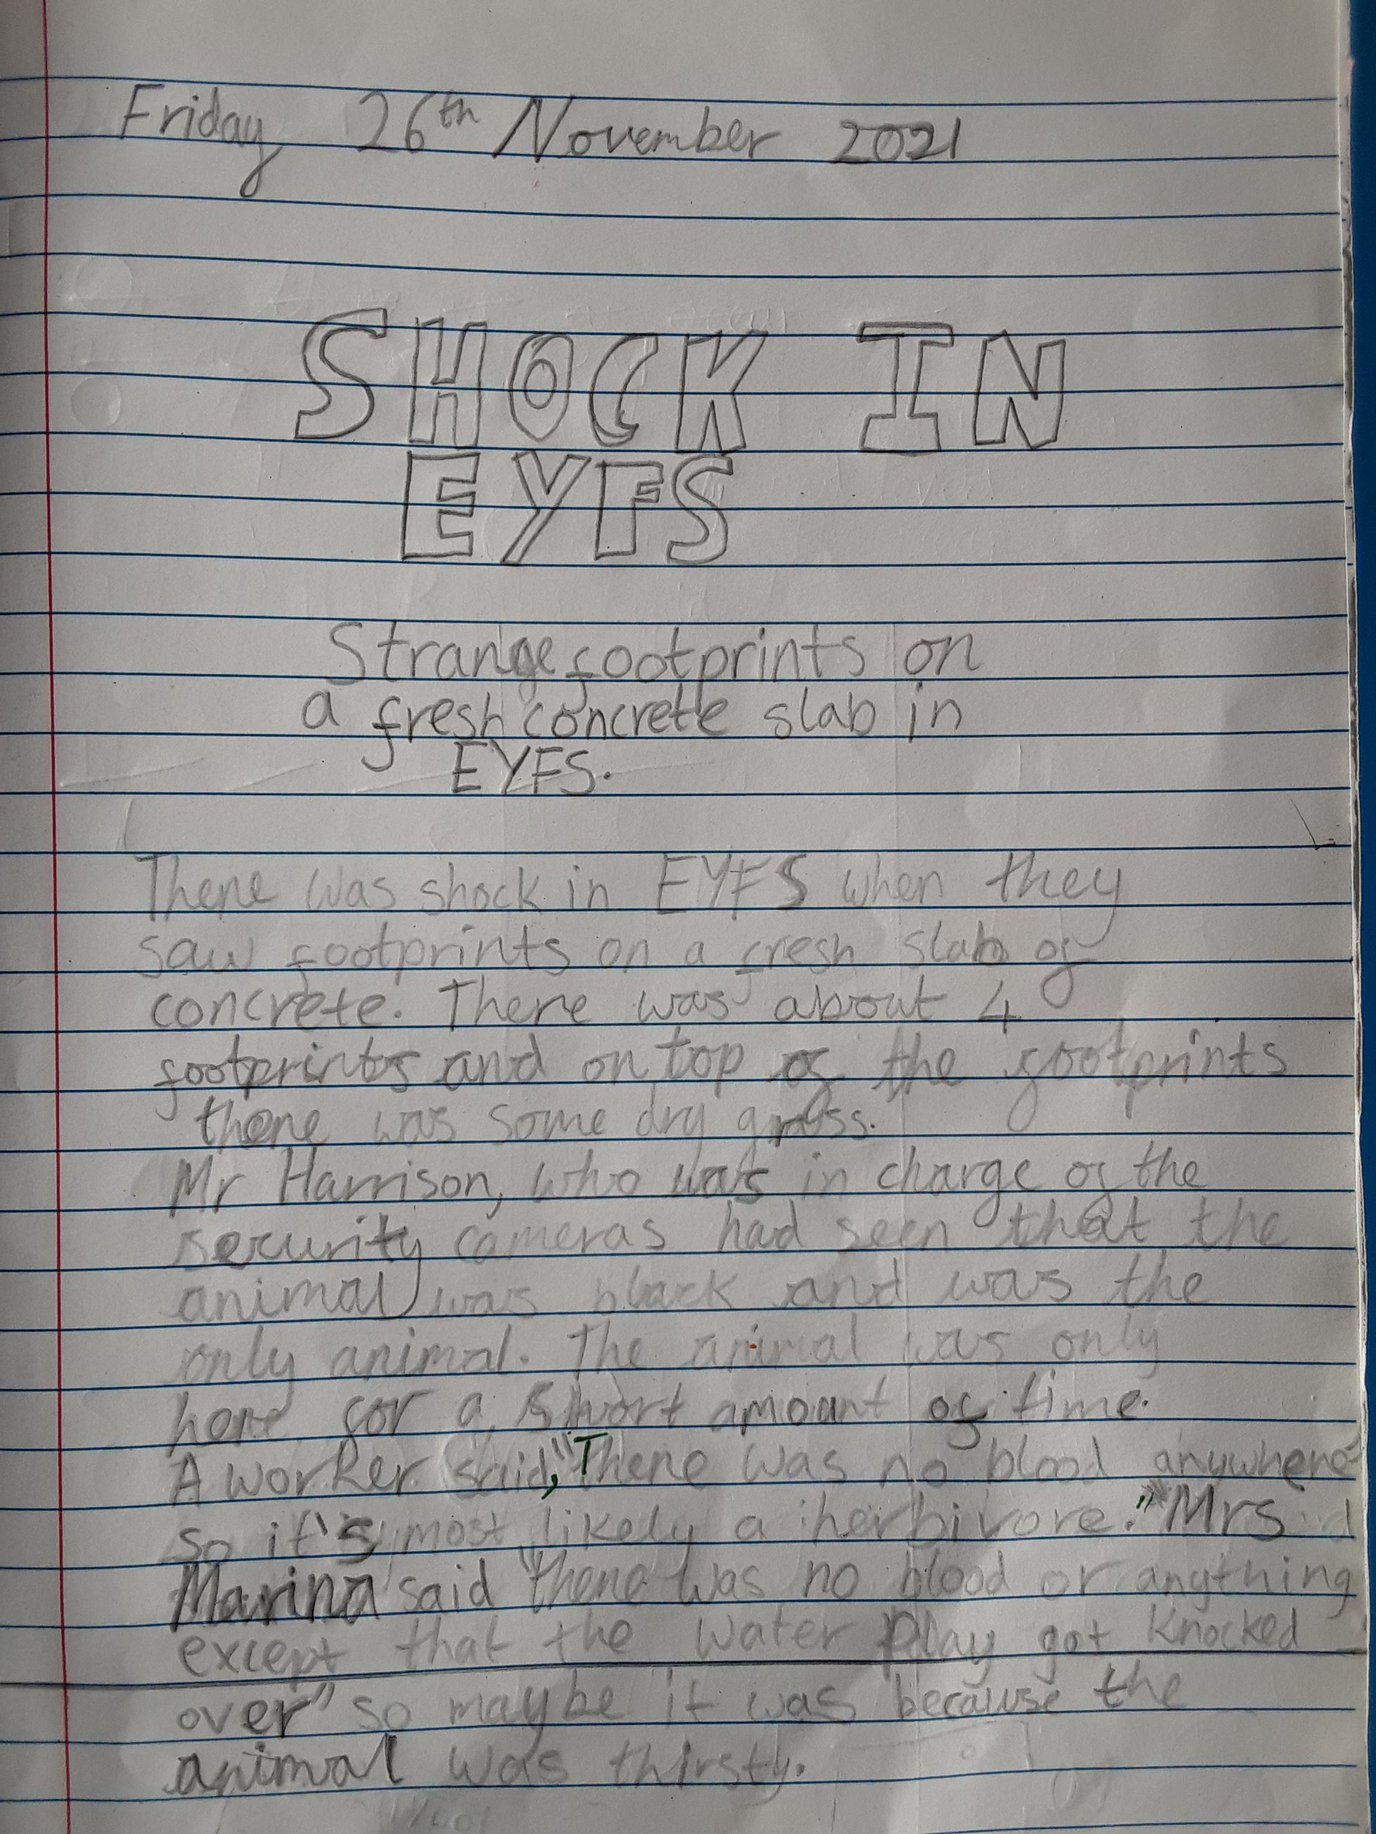 Friday 26th November 2021
SHOCK IN
EYFS
Strange footprints on
a fresh concrete slab in
EYFS.
There was shock in EYFS when they
saw footprints on a fresh slab of
concrete. There was about 4
footprints and on top of the footprints
there was some dry grass.
Mr Harrison, who was in charge of the
security cameras had seen that the
animal was black and was the
only animal. The animal was only
here for a short amount of time.
A worker said, "There was no blood anywhere
so it's most likely a herbivore." Mrs
Marina said "there was no blood or anything
except that the water play got knocked
over" so maybe it was because the
animal was thirsty.